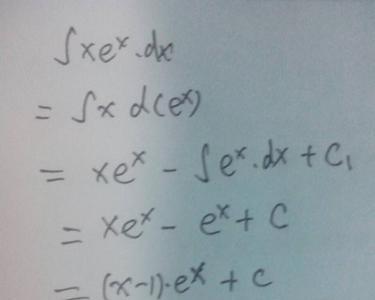 ∫xeˣ·dx
= ∫x d(eˣ)
= xeˣ - ∫eˣ·dx + C₁
= xeˣ - eˣ + C
= (x-1)·eˣ + C